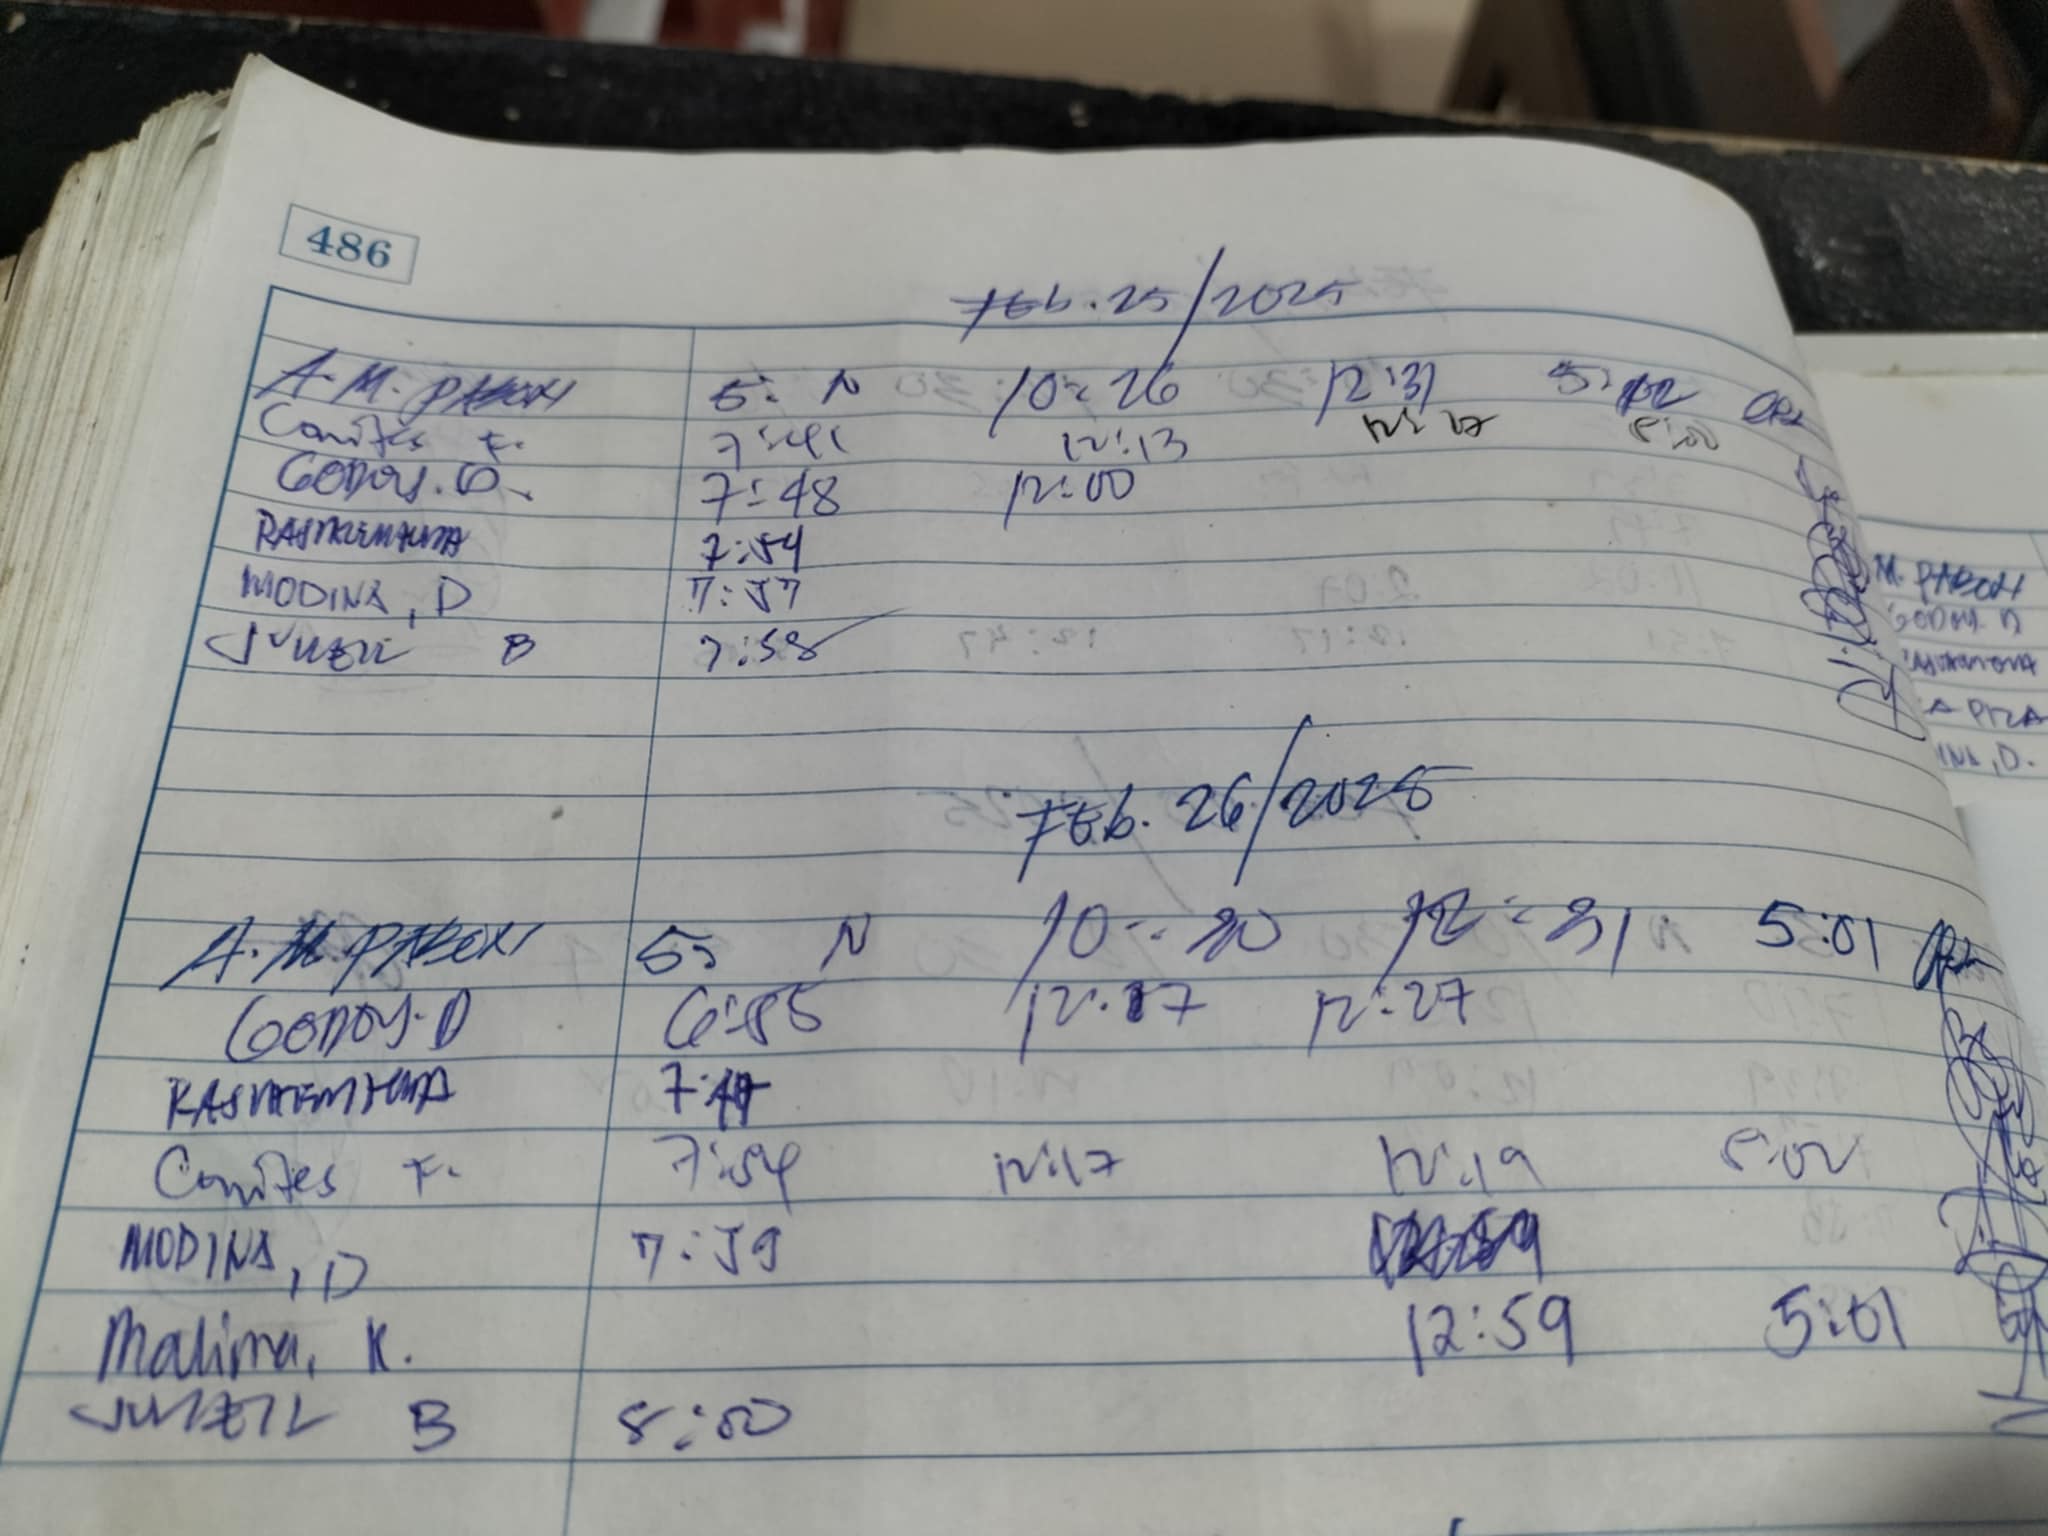 486
Feb. 25/2025
A. M. PABON 5: N 10:26 12:31 5:02
Comites F. 7:41 12:13 12:27 5:00
GODOY. D. 7:48 12:00
7:54
MODINA, D 7:57
B 7:58
Feb. 26/2025
A. M. PABON 55 N 10:30 12:31 5:01
GODOY. D 6:55 12:17 12:27
7:47
Comites F. 7:54 12:17 12:19 5:02
MODINA, D 7:59
Malima, K. 12:59 5:01
B 8:00
M. PABON
GODOY. D
INA, D.